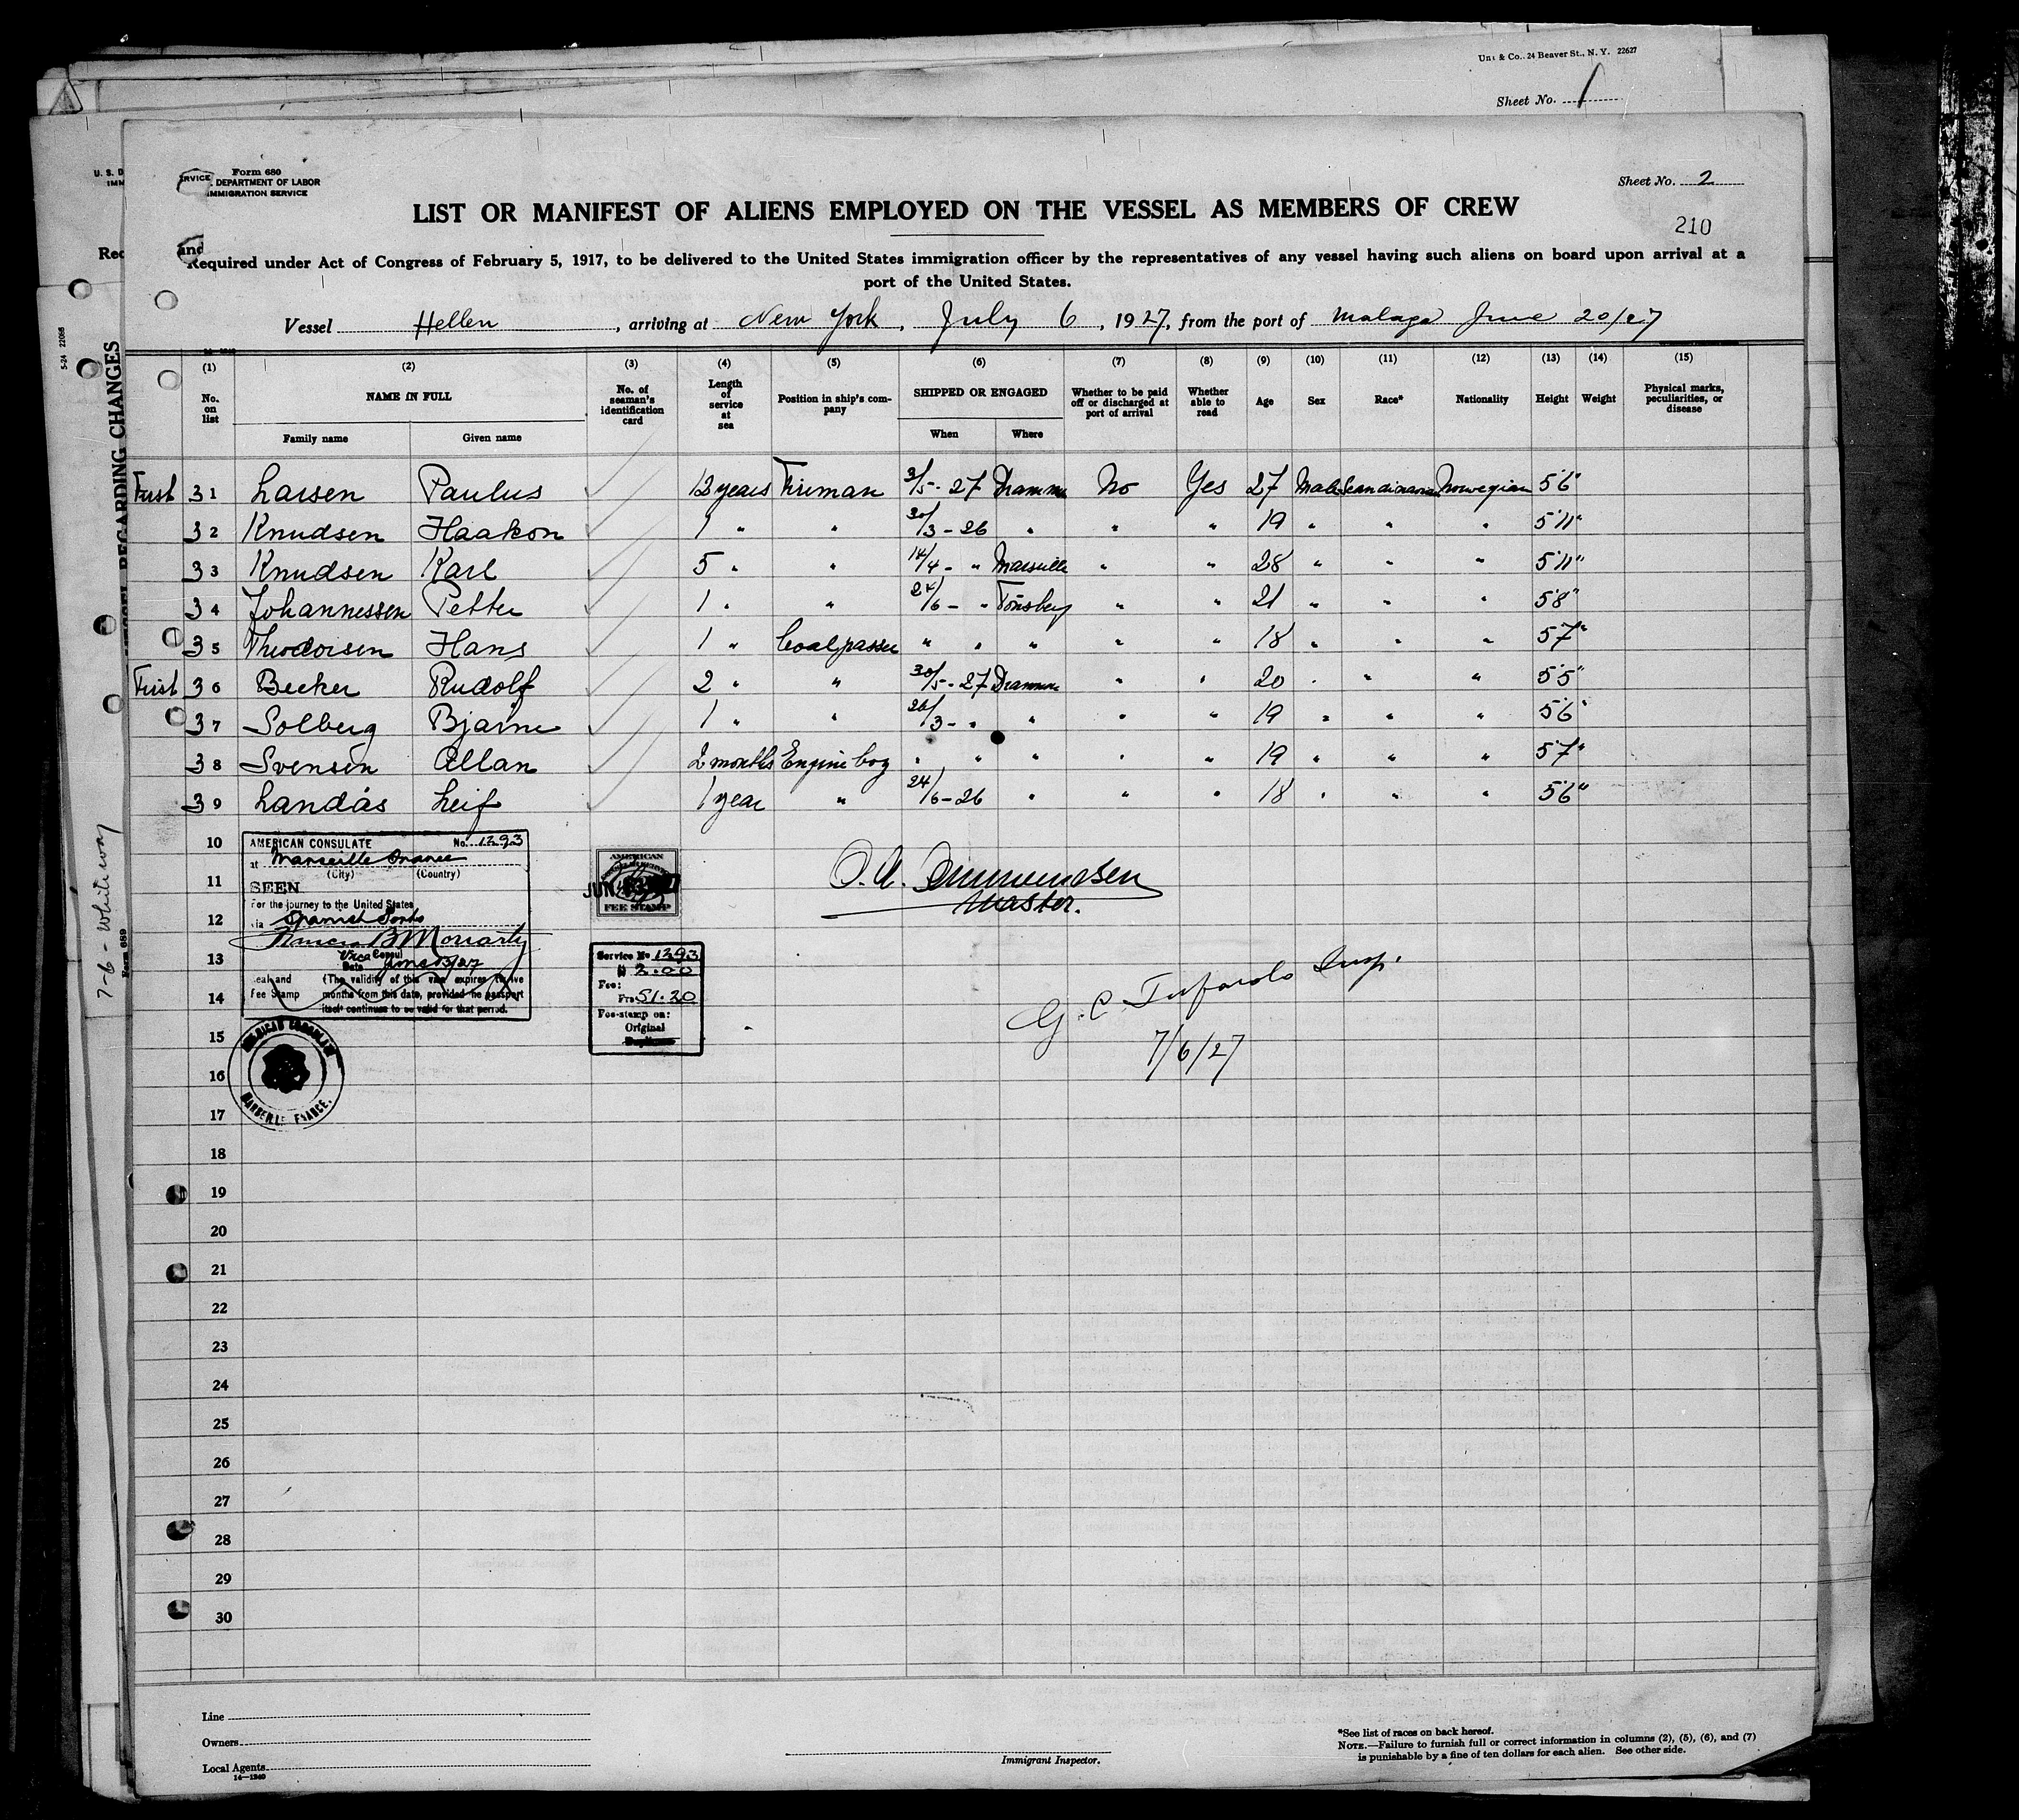 Uni & Co., 24 Beaver St., N. Y. 22627
Sheet No. 1
U. S. D
IMM
Rec
5-24 22068
VESSEL REGARDING CHANGES
7-6- Whiteway
Form 689
RVICE
and
Form 680
. DEPARTMENT OF LABOR
IMMIGRATION SERVICE
Sheet No. 2
LIST OR MANIFEST OF ALIENS EMPLOYED ON THE VESSEL AS MEMBERS OF CREW
210
Required under Act of Congress of February 5, 1917, to be delivered to the United States immigration officer by the representatives of any vessel having such aliens on board upon arrival at a
port of the United States.
Vessel Hellen, arriving at New York, July 6, 1927, from the port of Malaga June 20/27
(1) (2) (3) (4) (5) (6) (7) (8) (9) (10) (11) (12) (13) (14) (15)
No. on list NAME IN FULL No. of seaman's identification card Length of service at sea Position in ship's company SHIPPED OR ENGAGED Whether to be paid off or discharged at port of arrival Whether able to read Age Sex Race* Nationality Height Weight Physical marks, peculiarities, or disease
Family name Given name When Where
First 31 Larsen Paulus 12 years Fireman 3/5-27 Dramm No Yes 27 Male Scandinavian Norwegian 5'6"
32 Knudsen Haakon 1 " " 30/3-26 " " " 19 " " " 5'11"
33 Knudsen Karl 5 " " 14/4- " Marseille " " 28 " " " 5'11"
34 Johannessen Petter 1 " " 24/6- " Tönsberg " " 21 " " " 5'8"
35 Theodorsen Hans 1 " Coalpasser " " " " " 18 " " " 5'7"
First 36 Becker Rudolf 2 " " 30/5-27 Dramm " " 20 " " " 5'5"
37 Solberg Bjarne 1 " " 26/3- " " " " 19 " " " 5'6"
38 Svensen Allan 2 months Engine boy " " " " " 19 " " " 5'7"
39 Landås Leif 1 year " 24/6-26 " " " 18 " " " 5'6"
10
11
12
13
14
15
16
17
18
19
20
21
22
23
24
25
26
27
28
29
30
AMERICAN CONSULATE No. 1293
at Marseille France
(City) (Country)
SEEN
For the journey to the United States
via Spanish Ports
Francis B Moriarty
Vice Consul
Date June 13/27
Seal and Fee Stamp (The validity of this visa expires twelve
months from this date, provided the passport
itself continues to be valid for that period.
AMERICAN CONSULATE
MARSEILLE FRANCE.
AMERICAN
FEE STAMP
JUN 13
Service No 1293
$ 2.00
Fee:
Frs 51.20
Fee-stamp on:
Original
Duplicate
Master.
G. C. Insp.
7/6/27
Line
Owners
Local Agents
14-1240
Immigrant Inspector.
*See list of races on back hereof.
NOTE.—Failure to furnish full or correct information in columns (2), (5), (6), and (7)
is punishable by a fine of ten dollars for each alien. See other side.